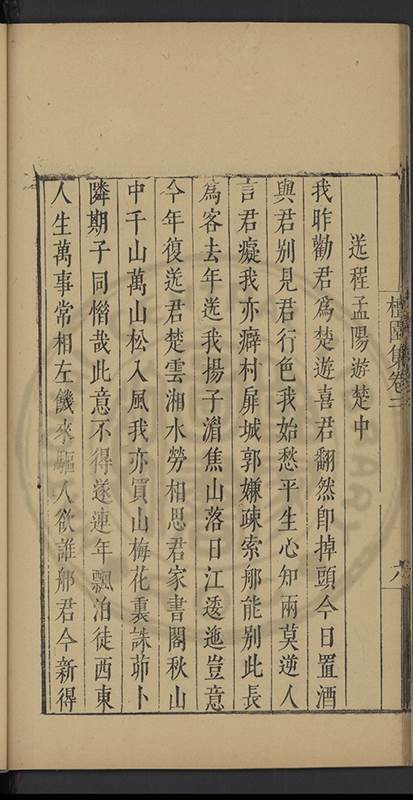 檀園集卷二
八
送程孟陽遊楚中
我昨勸君爲楚遊喜君翻然即掉頭今日置酒
與君别見君行色我始愁平生心知兩莫逆人
言君癡我亦癖村扉城郭嫌疎索那能别此長
爲客去年送我揚子湄焦山落日江逶迤豈意
今年復送君楚雲湘水勞相思君家書閣秋山
中千山萬山松入風我亦買山梅花裏誅茆卜
隣期子同㥶哉此意不得遂連年飄泊徒西東
人生萬事常相左饑來驅人欲誰那君今新得